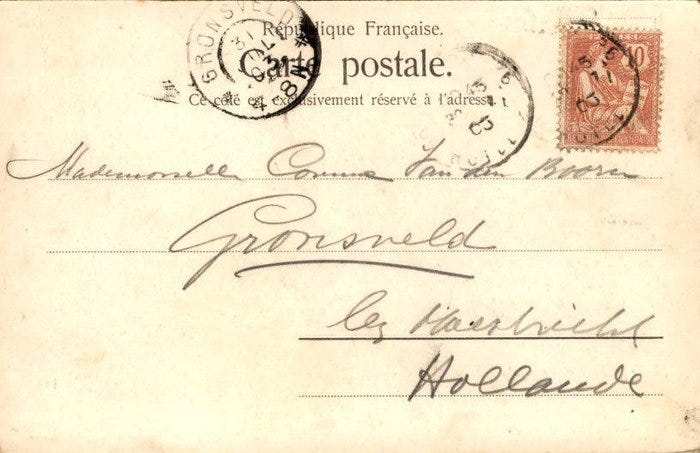 République Française.
Carte postale.
Ce côté est exclusivement réservé à l'adresse
GRONSVELD
10
Mademoiselle Van den Boorn
Gronsveld
Maestricht
Hollande